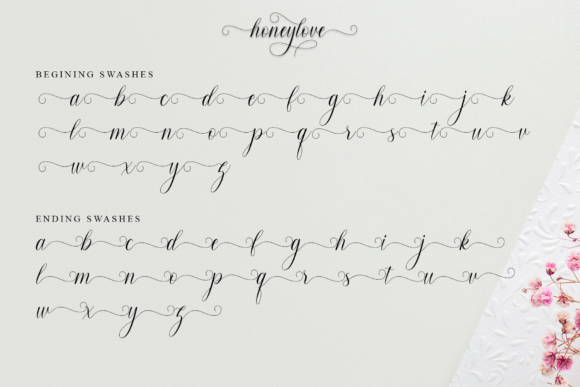 honeylove
BEGINING SWASHES
a b c d e f g h i j k
l m n o p q r s t u v
w x y z
ENDING SWASHES
a b c d e f g h i j k
l m n o p q r s t u v
w x y z